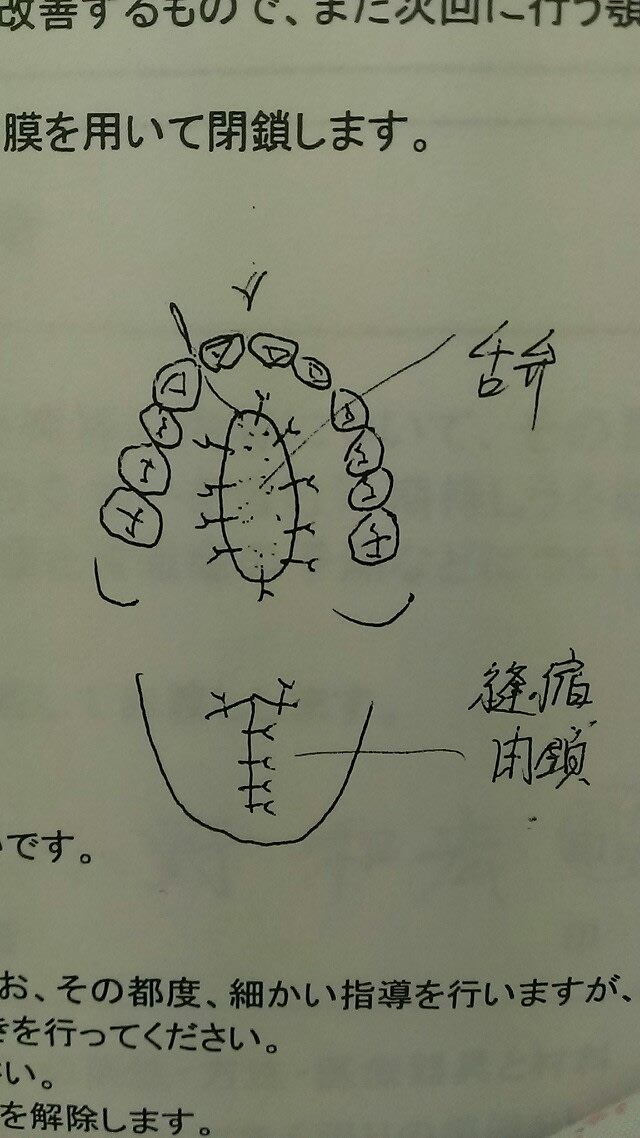 改善するもので、また次回に行う顎
膜を用いて閉鎖します。
舌弁
縫縮
閉鎖
いです。
お、その都度、細かい指導を行いますが、
きを行ってください。
さい。
を解除します。